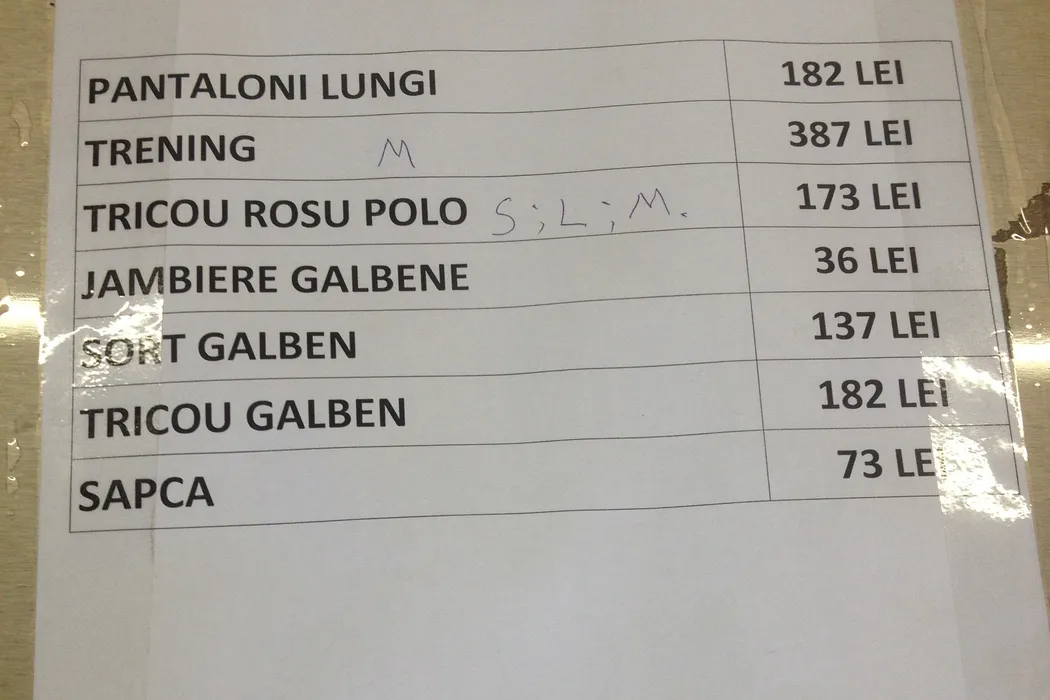 PANTALONI LUNGI 182 LEI
TRENING M 387 LEI
TRICOU ROSU POLO S; L; M. 173 LEI
JAMBIERE GALBENE 36 LEI
SORT GALBEN 137 LEI
TRICOU GALBEN 182 LEI
SAPCA 73 LE